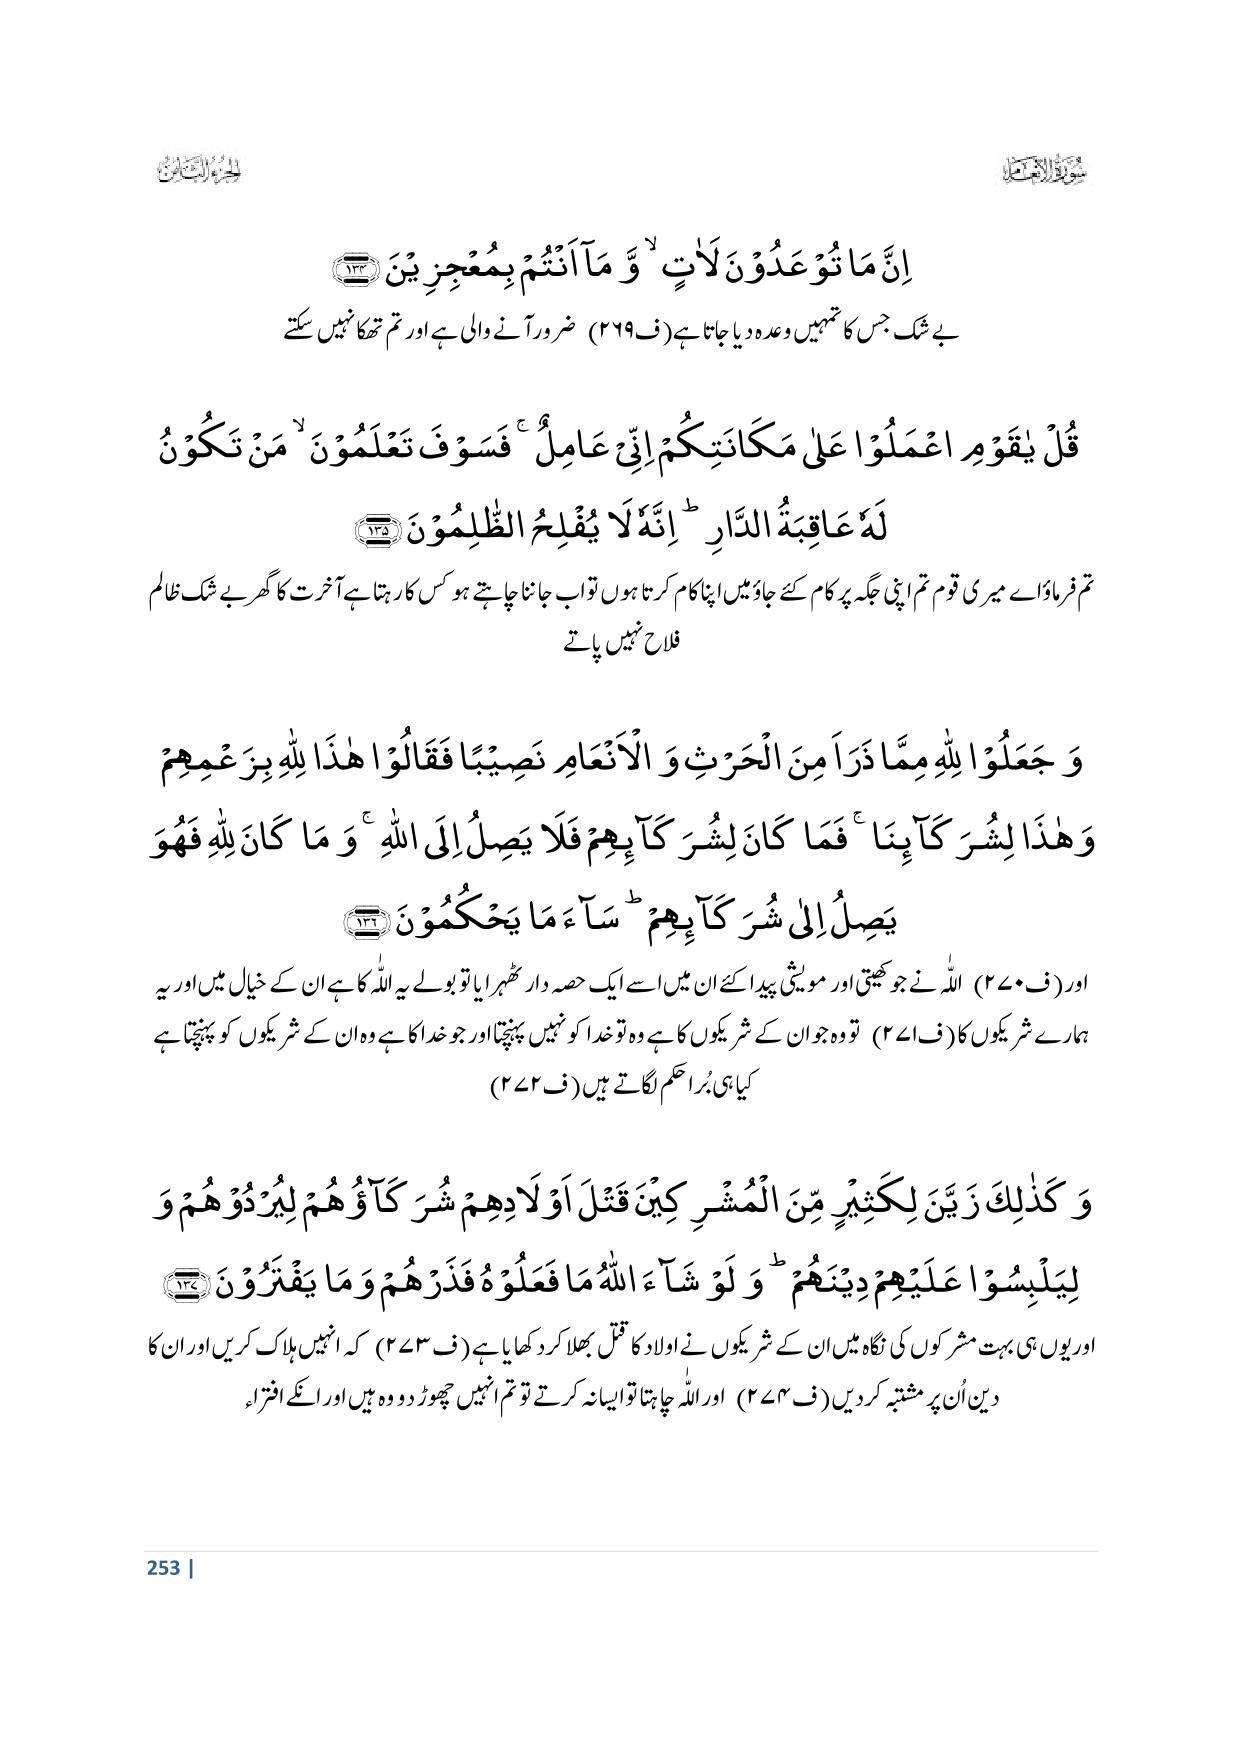 سُوْرَةُ الْاَنْعَام
اَلْجُزْءُ الثَّامِنُ
اِنَّ مَا تُوْعَدُوْنَ لَاٰتٍ ۙ وَّ مَاۤ اَنْتُمْ بِمُعْجِزِیْنَ ﴿۱۳۴﴾
بے شک جس کا تمہیں وعدہ دیا جاتا ہے (ف۲۶۹) ضرور آنے والی ہے اور تم تھکا نہیں سکتے
قُلْ یٰقَوْمِ اعْمَلُوْا عَلٰی مَكَانَتِكُمْ اِنِّیْ عَامِلٌ ۚ فَسَوْفَ تَعْلَمُوْنَ ۙ مَنْ تَكُوْنُ
لَهٗ عَاقِبَةُ الدَّارِ ؕ اِنَّهٗ لَا یُفْلِحُ الظّٰلِمُوْنَ ﴿۱۳۵﴾
تم فرماؤ اے میری قوم تم اپنی جگہ پر کام کئے جاؤ میں اپنا کام کرتا ہوں تو اب جاننا چاہتے ہو کس کا رہتا ہے آخرت کا گھر بے شک ظالم
فلاح نہیں پاتے
وَ جَعَلُوْا لِلّٰهِ مِمَّا ذَرَاَ مِنَ الْحَرْثِ وَ الْاَنْعَامِ نَصِیْبًا فَقَالُوْا هٰذَا لِلّٰهِ بِزَعْمِهِمْ
وَ هٰذَا لِشُرَكَآىِٕنَا ۚ فَمَا كَانَ لِشُرَكَآىِٕهِمْ فَلَا یَصِلُ اِلَی اللّٰهِ ۚ وَ مَا كَانَ لِلّٰهِ فَهُوَ
یَصِلُ اِلٰی شُرَكَآىِٕهِمْ ؕ سَآءَ مَا یَحْكُمُوْنَ ﴿۱۳۶﴾
اور (ف۲۷۰) اللّٰہ نے جو کھیتی اور مویشی پیدا کئے ان میں اسے ایک حصہ دار ٹھہرایا تو بولے یہ اللّٰہ کا ہے ان کے خیال میں اور یہ
ہمارے شریکوں کا (ف۲۷۱) تو وہ جو ان کے شریکوں کا ہے وہ تو خدا کو نہیں پہنچتا اور جو خدا کا ہے وہ ان کے شریکوں کو پہنچتا ہے
کیا ہی بُرا حکم لگاتے ہیں (ف۲۷۲)
وَ كَذٰلِكَ زَیَّنَ لِكَثِیْرٍ مِّنَ الْمُشْرِكِیْنَ قَتْلَ اَوْلَادِهِمْ شُرَكَآؤُهُمْ لِیُرْدُوْهُمْ وَ
لِیَلْبِسُوْا عَلَیْهِمْ دِیْنَهُمْ ؕ وَ لَوْ شَآءَ اللّٰهُ مَا فَعَلُوْهُ فَذَرْهُمْ وَ مَا یَفْتَرُوْنَ ﴿۱۳۷﴾
اور یوں ہی بہت مشرکوں کی نگاہ میں ان کے شریکوں نے اولاد کا قتل بھلا کر دکھایا ہے (ف۲۷۳) کہ انہیں ہلاک کریں اور ان کا
دین اُن پر مشتبہ کردیں (ف۲۷۴) اور اللّٰہ چاہتا تو ایسا نہ کرتے تو تم انہیں چھوڑ دو وہ ہیں اور انکے افتراء
253 |